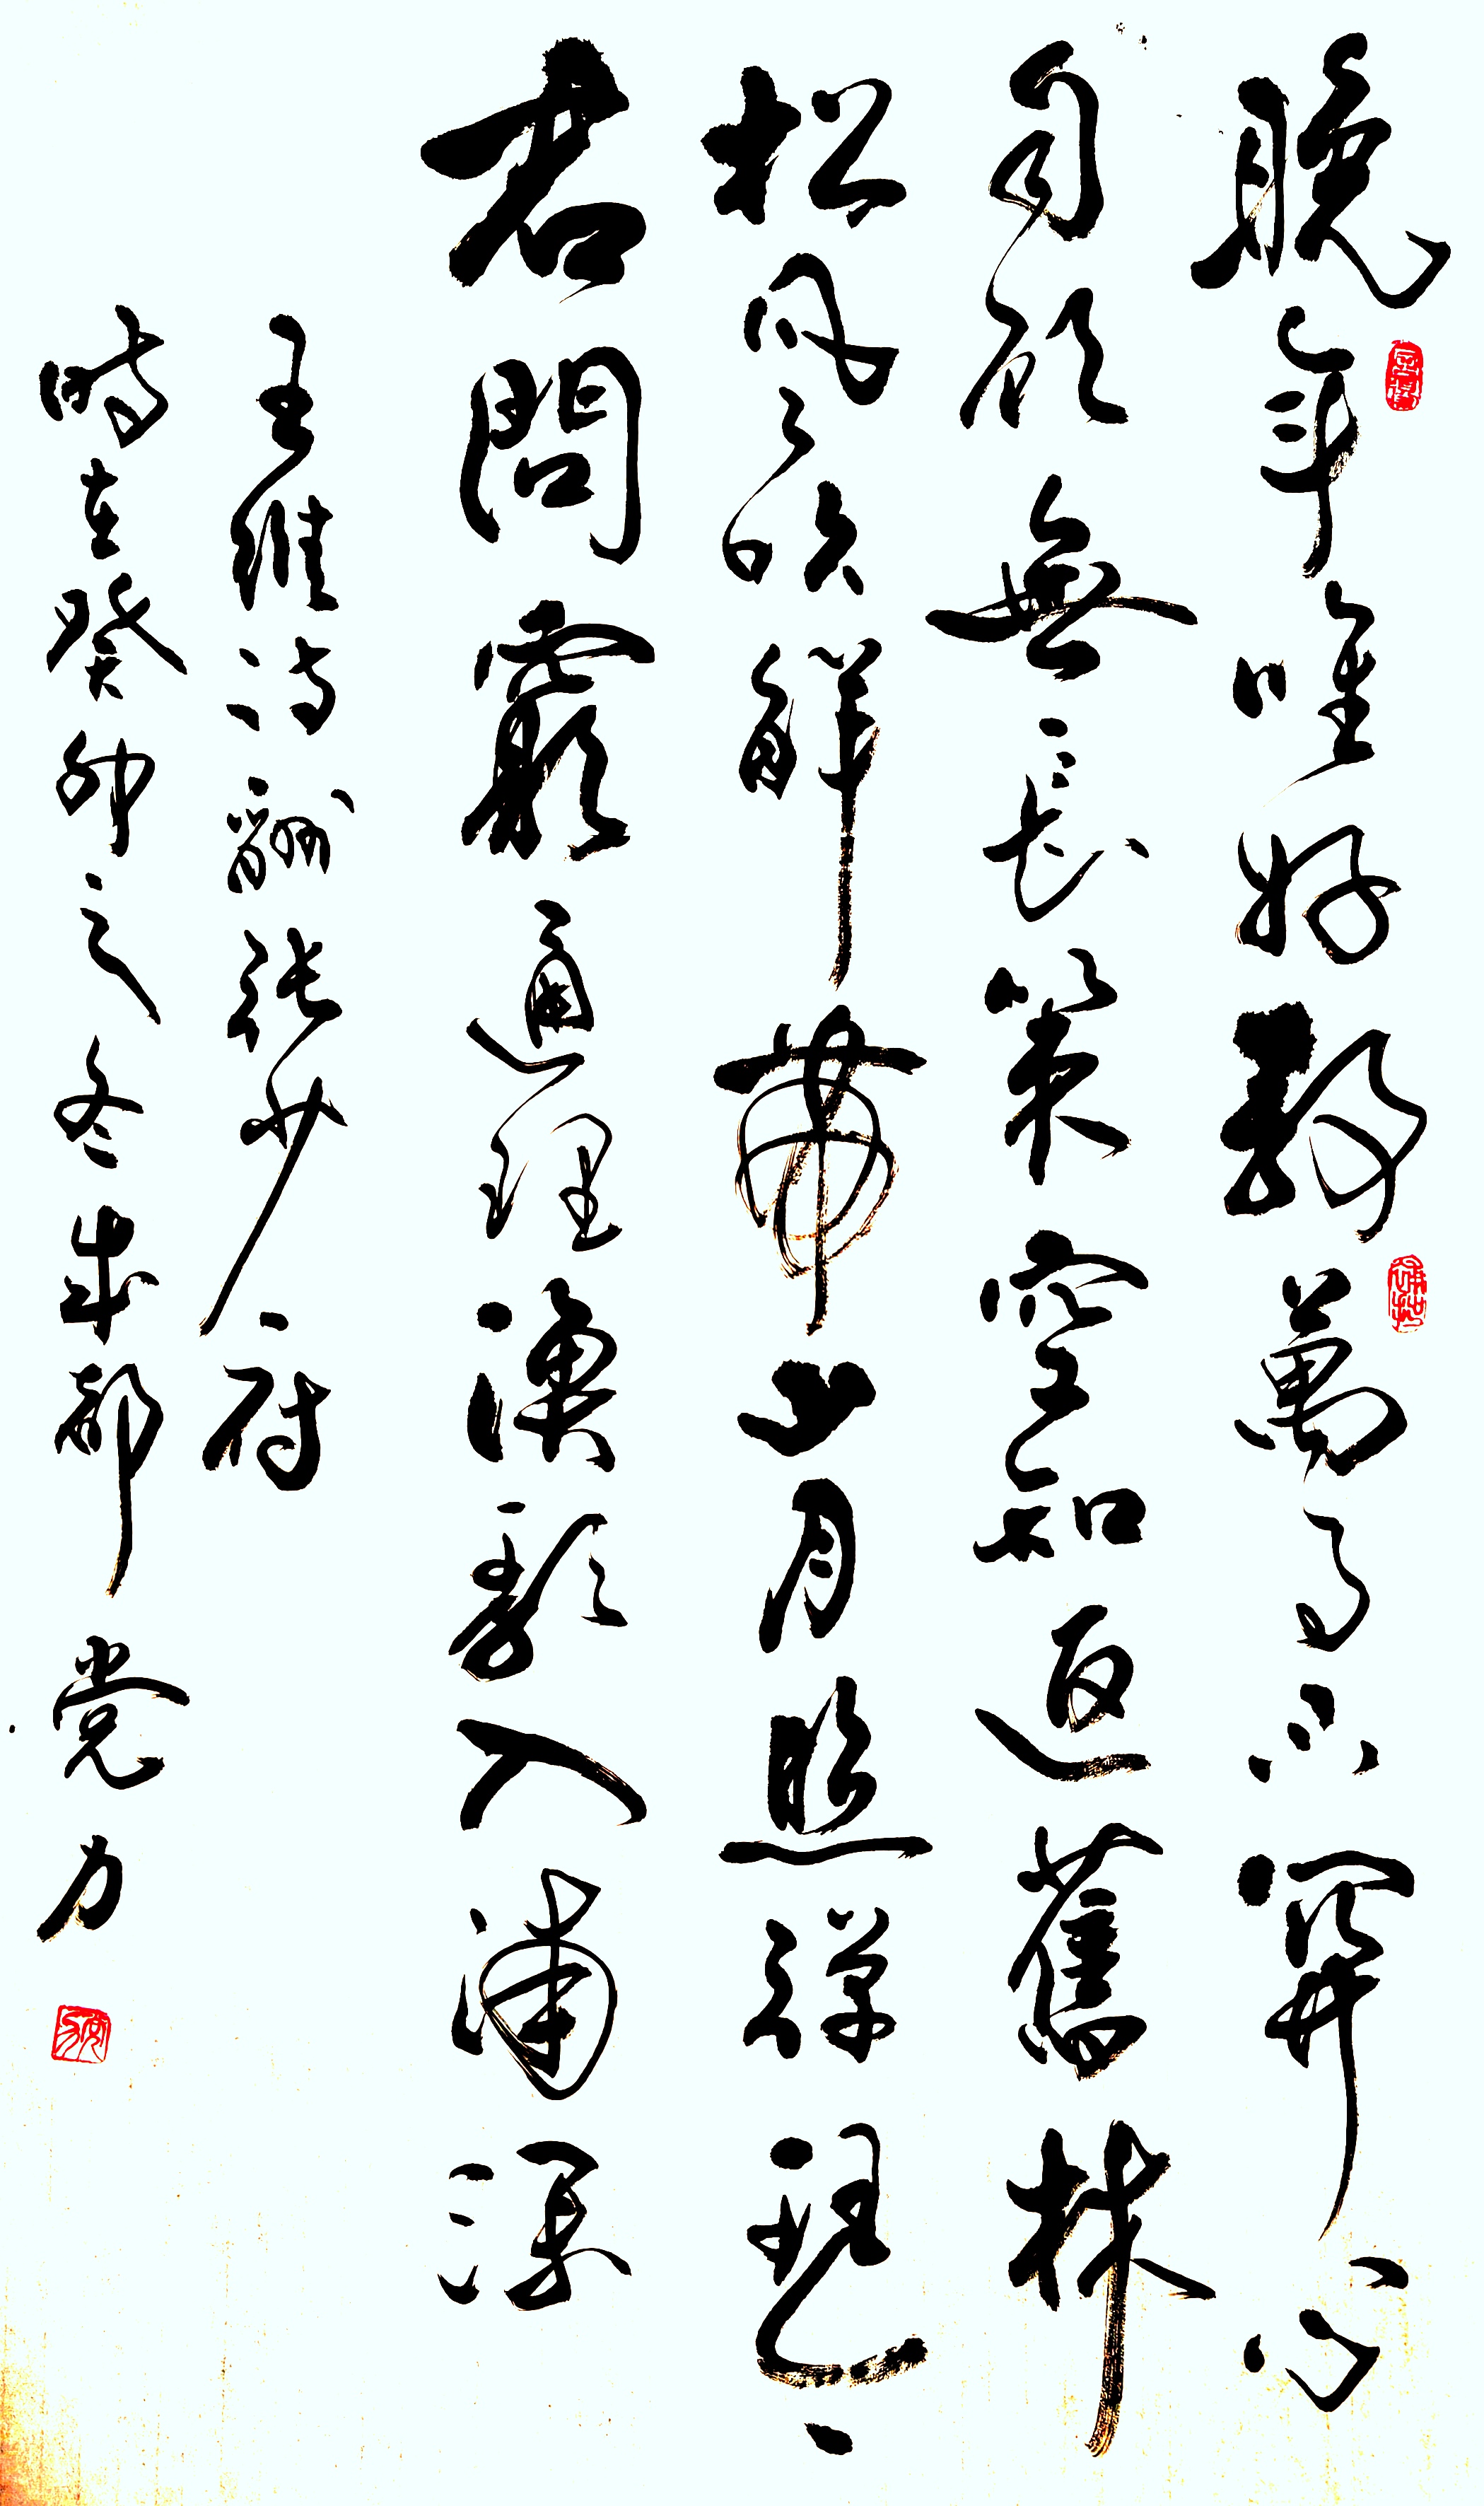 晚年唯好靜萬事不關心
自顧無長策空知返舊林
松風吹解帶山月照彈琴
君問窮通理漁歌入浦深
王維詩酬張少府
時在癸卯之冬成都党力